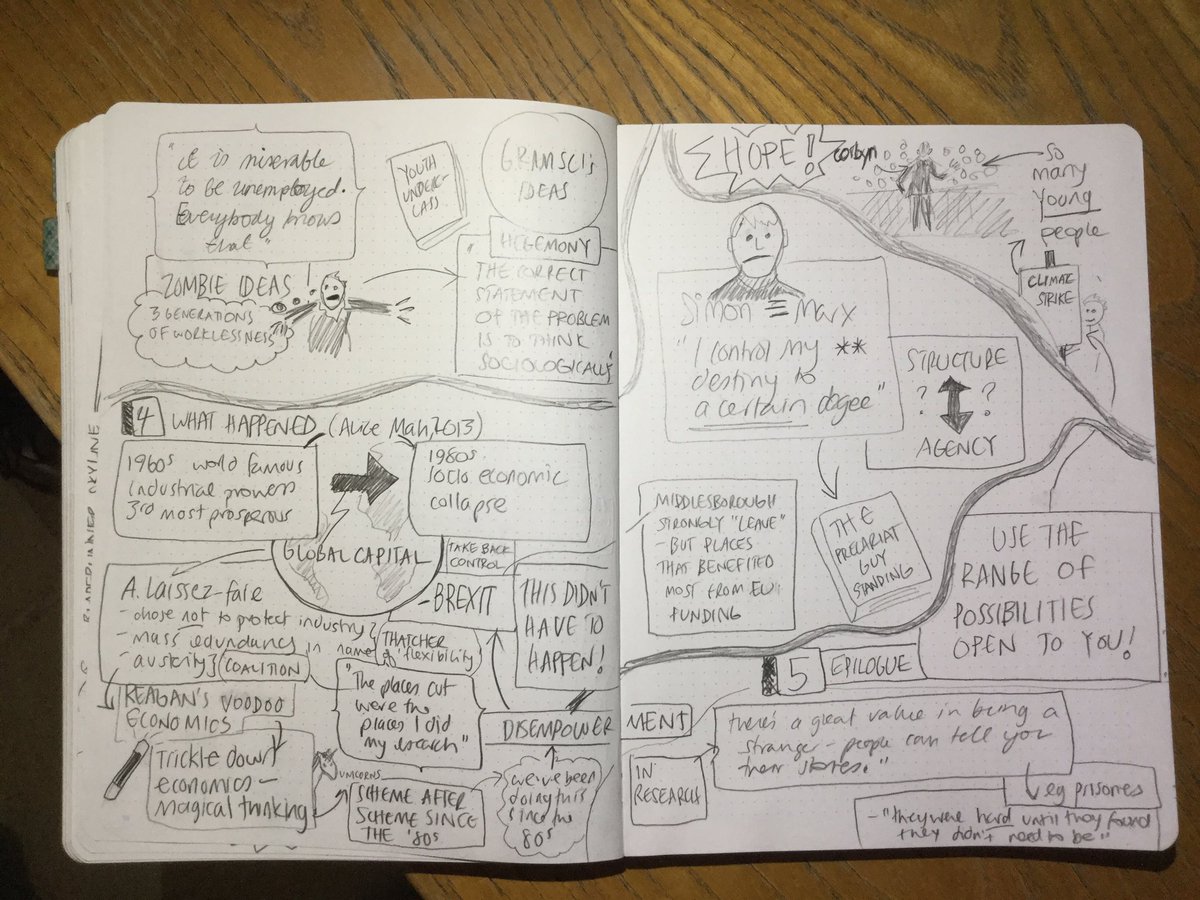 "it is miserable
to be unemployed.
Everybody knows
that"
YOUTH
UNDER-
CLASS
GRAMSCI'S
IDEAS
HEGEMONY
"THE CORRECT
STATEMENT
OF THE PROBLEM
IS TO THINK
SOCIOLOGICALLY"
ZOMBIE IDEAS!
3 GENERATIONS
OF WORKLESSNESS
4 WHAT HAPPENED (Alice Mah, 2013)
1960s world famous
industrial prowess
3rd most prosperous
1980s
socio economic
collapse
GLOBAL CAPITAL
TAKE BACK
CONTROL
- BREXIT
THIS DIDN'T
HAVE TO
HAPPEN!
A. Laissez-faire
- chose not to protect industry
- mass redundancy in name of 'flexibility'
- austerity
THATCHER
COALITION
REAGAN'S VOODOO
ECONOMICS
Trickle down
economics -
magical thinking
UNICORNS
"The places cut
were the
places I did
my research"
SCHEME AFTER
SCHEME SINCE
THE '80s
DISEMPOWER
MENT
we've been
doing this
since the
80s
SKYLINE
HOPE!
corbyn
so
many
young
people
CLIMATE
STRIKE
Simon Marx
"I control my **
destiny to
a certain degee"
STRUCTURE
? ?
AGENCY
MIDDLESBOROUGH
STRONGLY "LEAVE"
- BUT PLACES
THAT BENEFITED
MOST FROM EU
FUNDING
THE
PRECARIAT
GUY
STANDING
USE THE
RANGE OF
POSSIBILITIES
OPEN TO YOU!
5 EPILOGUE
IN
RESEARCH
"there's a great value in being a
stranger - people can tell you
their stories."
eg prisoners
- "they were hard until they found
they didn't need to be"